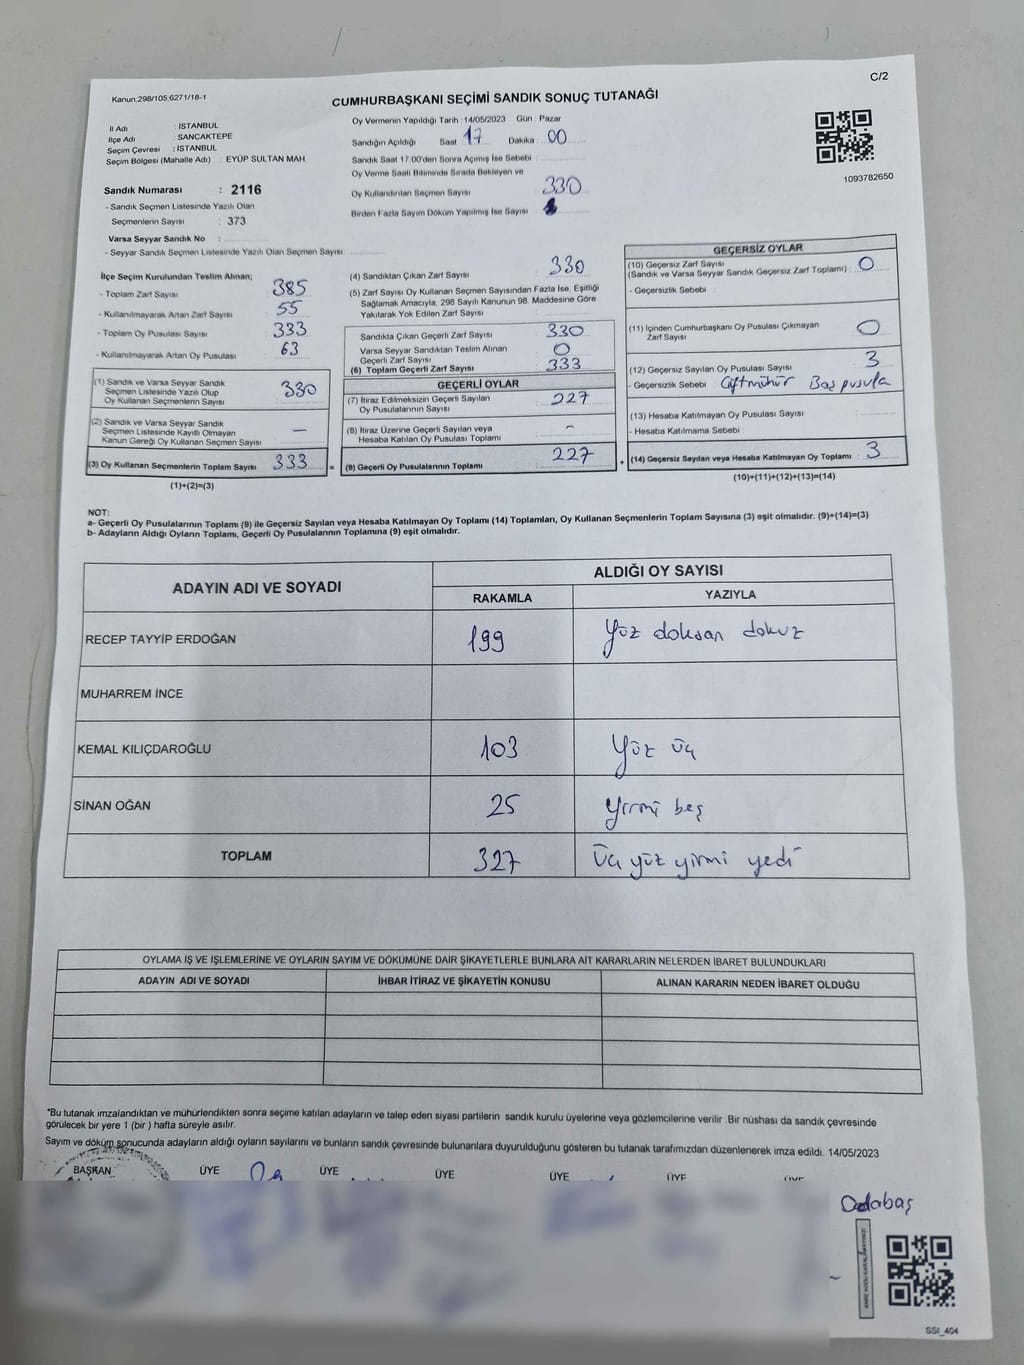 C/2
Kanun:298/105;6271/18-1
CUMHURBAŞKANI SEÇİMİ SANDIK SONUÇ TUTANAĞI
İl Adı : İSTANBUL
İlçe Adı : SANCAKTEPE
Seçim Çevresi : İSTANBUL
Seçim Bölgesi (Mahalle Adı) : EYÜP SULTAN MAH
Sandık Numarası : 2116
- Sandık Seçmen Listesinde Yazılı Olan
Seçmenlerin Sayısı : 373
Varsa Seyyar Sandık No :
- Seyyar Sandık Seçmen Listesinde Yazılı Olan Seçmen Sayısı
Oy Vermenin Yapıldığı Tarih : 14/05/2023 Gün : Pazar
Sandığın Açıldığı Saat : 17 Dakika : 00
Sandık Saat 17.00'den Sonra Açılmış İse Sebebi :
Oy Verme Saati Bitiminde Sırada Bekleyen ve
Oy Kullandırılan Seçmen Sayısı 330
Birden Fazla Sayım Döküm Yapılmış İse Sayısı
1093782650
İlçe Seçim Kurulundan Teslim Alınan;
- Toplam Zarf Sayısı 385
- Kullanılmayarak Artan Zarf Sayısı 55
- Toplam Oy Pusulası Sayısı 333
- Kullanılmayarak Artan Oy Pusulası 63
(1) Sandık ve Varsa Seyyar Sandık
Seçmen Listesinde Yazılı Olup
Oy Kullanan Seçmenlerin Sayısı 330
(2) Sandık ve Varsa Seyyar Sandık
Seçmen Listesinde Kayıtlı Olmayan
Kanun Gereği Oy Kullanan Seçmen Sayısı —
(3) Oy Kullanan Seçmenlerin Toplam Sayısı 333
(1)+(2)=(3)
(4) Sandıktan Çıkan Zarf Sayısı 330
(5) Zarf Sayısı Oy Kullanan Seçmen Sayısından Fazla İse, Eşitliği
Sağlamak Amacıyla, 298 Sayılı Kanunun 98. Maddesine Göre
Yakılarak Yok Edilen Zarf Sayısı
Sandıkta Çıkan Geçerli Zarf Sayısı 330
Varsa Seyyar Sandıktan Teslim Alınan
Geçerli Zarf Sayısı 0
(6) Toplam Geçerli Zarf Sayısı 333
GEÇERLİ OYLAR
(7) İtiraz Edilmeksizin Geçerli Sayılan
Oy Pusulalarının Sayısı 227
(8) İtiraz Üzerine Geçerli Sayılan veya
Hesaba Katılan Oy Pusulası Toplamı -
= (9) Geçerli Oy Pusulalarının Toplamı 227
GEÇERSİZ OYLAR
(10) Geçersiz Zarf Sayısı
(Sandık ve Varsa Seyyar Sandık Geçersiz Zarf Toplamı) : 0
- Geçersizlik Sebebi :
(11) İçinden Cumhurbaşkanı Oy Pusulası Çıkmayan
Zarf Sayısı 0
(12) Geçersiz Sayılan Oy Pusulası Sayısı 3
- Geçersizlik Sebebi : Çift mühür Boş pusula
(13) Hesaba Katılmayan Oy Pusulası Sayısı
- Hesaba Katılmama Sebebi :
+ (14) Geçersiz Sayılan veya Hesaba Katılmayan Oy Toplamı : 3
(10)+(11)+(12)+(13)=(14)
NOT:
a- Geçerli Oy Pusulalarının Toplamı (9) ile Geçersiz Sayılan veya Hesaba Katılmayan Oy Toplamı (14) Toplamları, Oy Kullanan Seçmenlerin Toplam Sayısına (3) eşit olmalıdır. (9)+(14)=(3)
b- Adayların Aldığı Oyların Toplamı, Geçerli Oy Pusulalarının Toplamına (9) eşit olmalıdır.
ADAYIN ADI VE SOYADI
ALDIĞI OY SAYISI
RAKAMLA YAZIYLA
RECEP TAYYİP ERDOĞAN 199 Yüz doksan dokuz
MUHARREM İNCE
KEMAL KILIÇDAROĞLU 103 Yüz üç
SİNAN OĞAN 25 Yirmi beş
TOPLAM 327 Üç yüz yirmi yedi
OYLAMA İŞ VE İŞLEMLERİNE VE OYLARIN SAYIM VE DÖKÜMÜNE DAİR ŞİKAYETLERLE BUNLARA AİT KARARLARIN NELERDEN İBARET BULUNDUKLARI
ADAYIN ADI VE SOYADI İHBAR İTİRAZ VE ŞİKAYETİN KONUSU ALINAN KARARIN NEDEN İBARET OLDUĞU
*Bu tutanak imzalandıktan ve mühürlendikten sonra seçime katılan adayların ve talep eden siyasi partilerin sandık kurulu üyelerine veya gözlemcilerine verilir. Bir nüshası da sandık çevresinde
görülecek bir yere 1 (bir) hafta süreyle asılır.
Sayım ve döküm sonucunda adayların aldığı oyların sayılarını ve bunların sandık çevresinde bulunanlara duyurulduğunu gösteren bu tutanak tarafımızdan düzenlenerek imza edildi. 14/05/2023
BAŞKAN ÜYE ÜYE ÜYE ÜYE ÜYE ÜYE
SSI_404